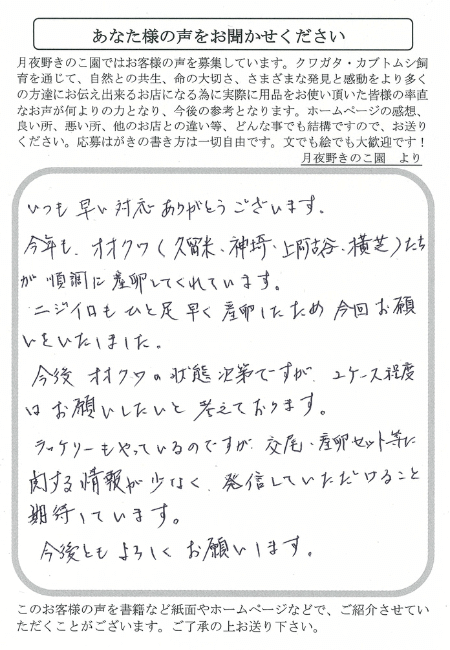 あなた様の声をお聞かせください
月夜野きのこ園ではお客様の声を募集しています。クワガタ・カブトムシ飼
育を通じて、自然との共生、命の大切さ、さまざまな発見と感動をより多く
の方達にお伝え出来るお店になる為に実際に用品をお使い頂いた皆様の率直
なお声が何よりの力となり、今後の参考となります。ホームページの感想、
良い所、悪い所、他のお店との違い等、どんな事でも結構ですので、お送り
ください。応募はがきの書き方は一切自由です。文でも絵でも大歓迎です！
月夜野きのこ園　より
いつも早い対応ありがとうございます。
今年も、オオクワ（久留米、神埼、上阿古谷、横芝）たち
が順調に産卵してくれています。
ニジイロもひと足早く産卵したため今回お願
いをいたしました。
今後オオクワの状態次第ですが、2ケース程度
はお願いしたいと考えております。
ラッケリーもやっているのですが、交尾、産卵セット等に
関する情報が少なく、発信していただけること
期待しています。
今後ともよろしくお願いします。
このお客様の声を書籍など紙面やホームページなどで、ご紹介させてい
ただくことがございます。ご了承の上お送り下さい。